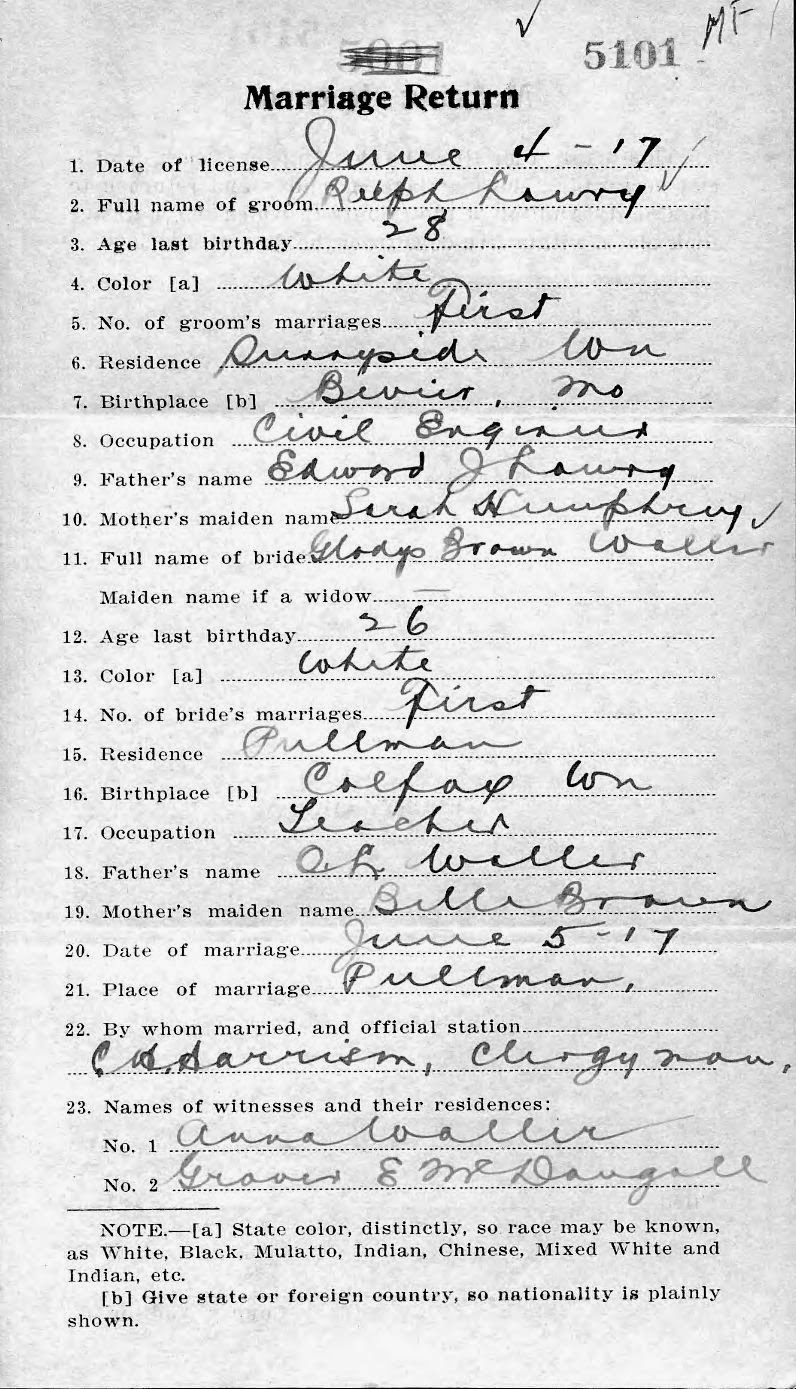 5101
Marriage Return
1. Date of license June 4 - 17
2. Full name of groom Ralph Lowry
3. Age last birthday 28
4. Color [a] White
5. No. of groom's marriages First
6. Residence Sunnyside Wn
7. Birthplace [b] Bevier, Mo
8. Occupation Civil Engineer
9. Father's name Edward J Lowry
10. Mother's maiden name Sarah Humphrey
11. Full name of bride Gladys Brown Waller
Maiden name if a widow —
12. Age last birthday 26
13. Color [a] White
14. No. of bride's marriages First
15. Residence Pullman
16. Birthplace [b] Colfax Wn
17. Occupation Teacher
18. Father's name O L Waller
19. Mother's maiden name Belle Brown
20. Date of marriage June 5 - 17
21. Place of marriage Pullman,
22. By whom married, and official station
C H. Harrison, Clergyman,
23. Names of witnesses and their residences:
No. 1 Anna Waller
No. 2 Grover E McDougall
NOTE.—[a] State color, distinctly, so race may be known,
as White, Black, Mulatto, Indian, Chinese, Mixed White and
Indian, etc.
[b] Give state or foreign country, so nationality is plainly
shown.